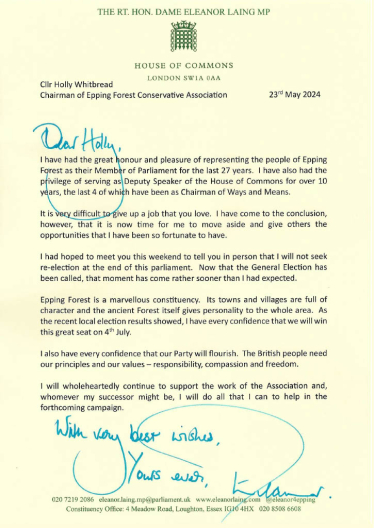 THE RT. HON. DAME ELEANOR LAING MP
HOUSE OF COMMONS
LONDON SW1A 0AA
Cllr Holly Whitbread
Chairman of Epping Forest Conservative Association 23rd May 2024
Dear Holly,
I have had the great honour and pleasure of representing the people of Epping
Forest as their Member of Parliament for the last 27 years. I have also had the
privilege of serving as Deputy Speaker of the House of Commons for over 10
years, the last 4 of which have been as Chairman of Ways and Means.
It is very difficult to give up a job that you love. I have come to the conclusion,
however, that it is now time for me to move aside and give others the
opportunities that I have been so fortunate to have.
I had hoped to meet you this weekend to tell you in person that I will not seek
re-election at the end of this parliament. Now that the General Election has
been called, that moment has come rather sooner than I had expected.
Epping Forest is a marvellous constituency. Its towns and villages are full of
character and the ancient Forest itself gives personality to the whole area. As
the recent local election results showed, I have every confidence that we will win
this great seat on 4th July.
I also have every confidence that our Party will flourish. The British people need
our principles and our values – responsibility, compassion and freedom.
I will wholeheartedly continue to support the work of the Association and,
whomever my successor might be, I will do all that I can to help in the
forthcoming campaign.
With very best wishes,
Yours ever,
Eleanor.
020 7219 2086 eleanor.laing.mp@parliament.uk www.eleanorlaing.com @eleanor4epping
Constituency Office: 4 Meadow Road, Loughton, Essex IG10 4HX 020 8508 6608